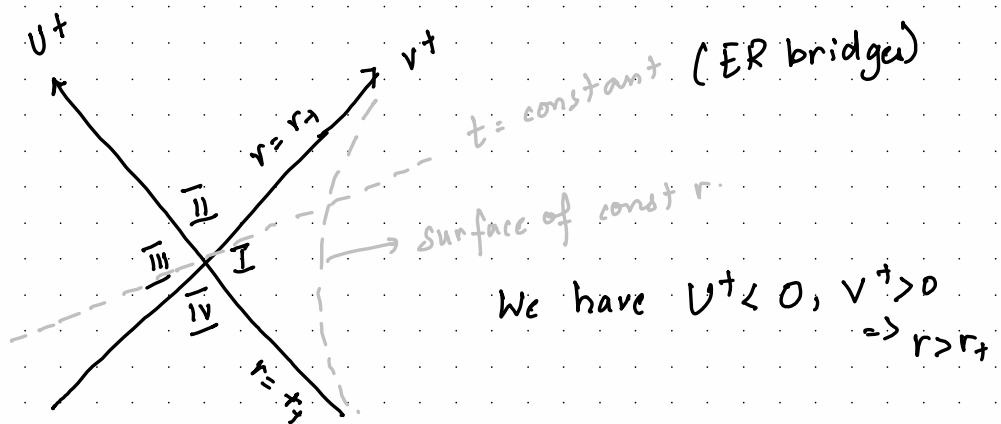 U⁺
v⁺
(ER bridges)
r = r₊
t = constant
II
III
I
surface of const r.
IV
We have U⁺ < 0, v⁺ > 0
=> r > r₊
r =